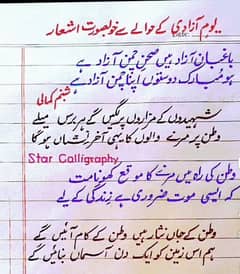 یوم آزادی کے حوالے سے خوبصورت اشعار
باغباں آزاد ہیں صحن چمن آزاد ہے
ہو مبارک دوستوں اپنا چمن آزاد ہے
شبنم کمالی
شہیدوں کے مزاروں پر لگیں گے ہر برس میلے
وطن پر مرنے والوں کا یہی آخر نشاں ہو گا
Star Calligraphy
وطن کی راہ میں مرنے کا موقع کھونا مت
کہ ایسی موت ضروری ہے زندگی کے لیے
وطن کے جاں نثار ہیں وطن کے کام آئیں گے
ہم اس زمیں کو ایک دن آسماں بنائیں گے